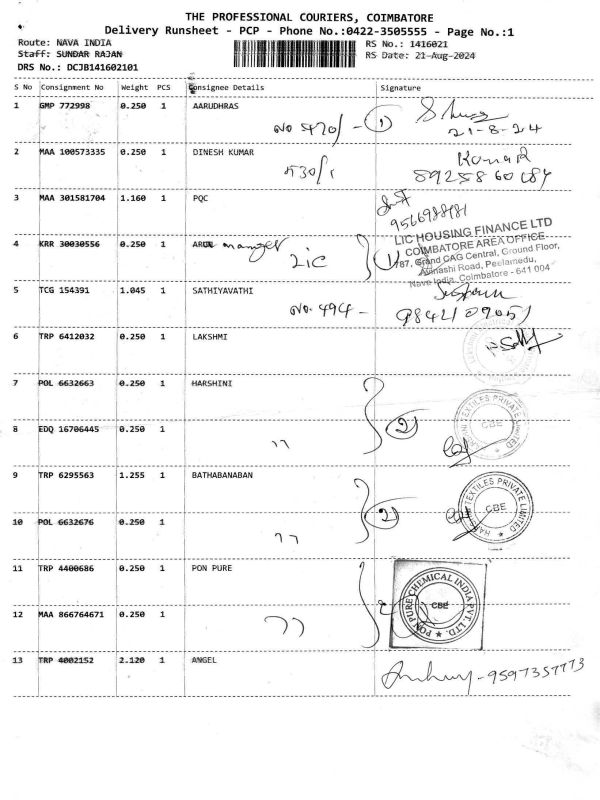 THE PROFESSIONAL COURIERS, COIMBATORE
Delivery Runsheet - PCP - Phone No.:0422-3505555 - Page No.:1
Route: NAVA INDIA
Staff: SUNDAR RAJAN
DRS No.: DCJB141602101
RS No.: 1416021
RS Date: 21-Aug-2024
S No Consignment No Weight PCS Consignee Details Signature
1 GMP 772998 0.250 1 AARUDHRAS
No 5470/- 1
21-8-24
2 MAA 100573335 0.250 1 DINESH KUMAR
Kumar
3 MAA 301581704 1.160 1 PQC
4 KRR 30030556 0.250 1 manager
LIC
LIC HOUSING FINANCE LTD
COIMBATORE AREA OFFICE
787, Grand CAG Central, Ground Floor,
Avinashi Road, Peelamedu,
Nava India, Coimbatore - 641 004
5 TCG 154391 1.045 1 SATHIYAVATHI
No. 494 -
9842109051
6 TRP 6412032 0.250 1 LAKSHMI
7 POL 6632663 0.250 1 HARSHINI
2
TEXTILES PRIVATE LIMITED
CBE
8 EDQ 16706445 0.250 1
"
9 TRP 6295563 1.255 1 BATHABANABAN
2
TEXTILES PRIVATE LIMITED
CBE
10 POL 6632676 0.250 1
"
11 TRP 4400686 0.250 1 PON PURE
PON PURE CHEMICAL INDIA PVT. LTD.
CBE
12 MAA 866764671 0.250 1
"
13 TRP 4002152 2.120 1 ANGEL
- 9597357773